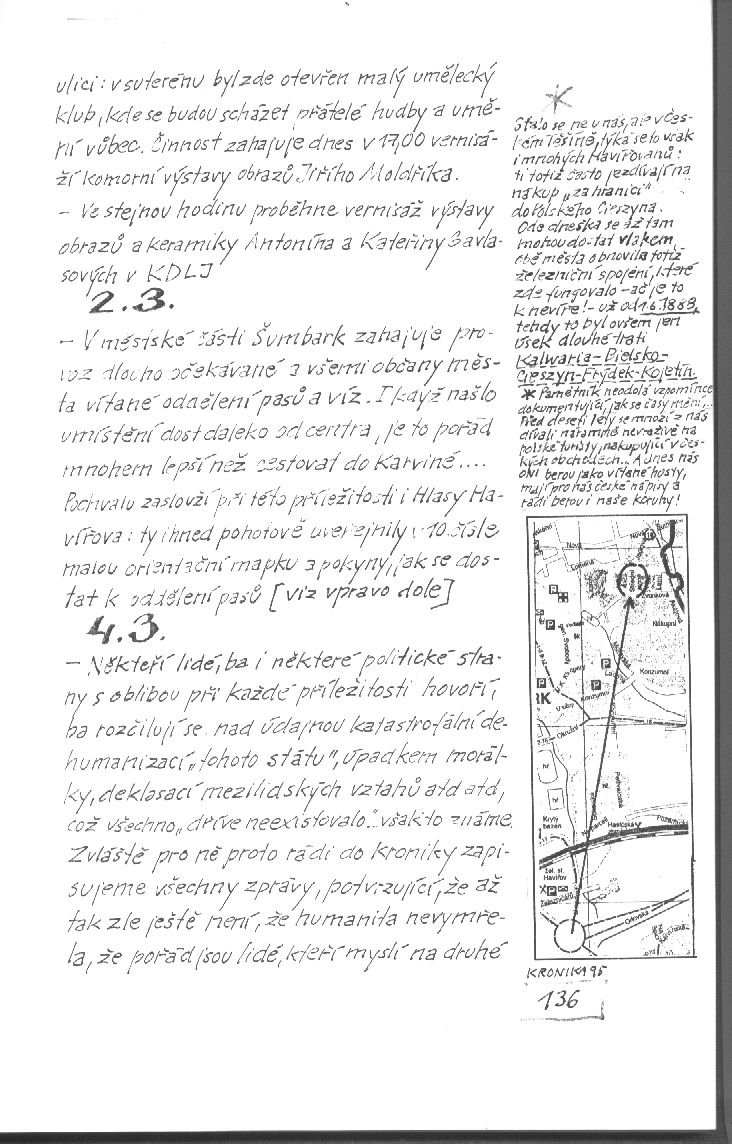 ulici: v suterénu byl zde otevřen malý umělecký
klub, kde se budou scházet přátelé hudby a umě-
ní vůbec. Činnost zahajuje dnes v 17,00 vernisá-
ží komorní výstavy obrazů Jiřího Moldříka.
- Ve stejnou hodinu proběhne vernisáž výstavy
obrazů a keramiky Antonína a Kateřiny Gavla-
sových v KDLJ
2.3.
- V městské části Šumbark zahajuje pro-
voz dlouho očekávané a všemi občany měs-
ta vítané oddělení pasů a víz. I když našlo
umístění dost daleko od centra, je to pořád
mnohem lepší než cestovat do Karviné....
Pochvalu zaslouží při této příležitosti i Hlasy Ha-
vířova: ty ihned pohotově uveřejnily v 10. čísle
malou orientační mapku a pokyny, jak se dos-
tat k oddělení pasů [viz vpravo dole]
4.3.
- Někteří lidé, ba i některé politické stra-
ny s oblibou při každé příležitosti hovoří,
ba rozčilují se nad údajnou katastrofální de-
humanizací „tohoto státu", úpadkem morál-
ky, deklasací mezilidských vztahů atd atd,
což všechno „dříve neexistovalo"... však to známe.
Zvláště pro ně proto rádi do kroniky zapi-
sujeme všechny zprávy, potvrzující, že až
tak zle ještě není, že humanita nevymře-
la, že pořád jsou lidé, kteří myslí na druhé
*
Stalo se ne u nás, ale v Čes-
kém Těšíně, týká se to však
i mnohých Havířovanů:
ti totiž často jezdívají na
nákup „za hranici"
do Polského Cieszyna.
Ode dneška se až tam
mohou dostat vlakem,
obě města obnovila totiž
železniční spojení, které
zde fungovalo - ač je to
k nevíře! - už od 1.6.1888,
tehdy to byl ovšem jen
úsek dlouhé trati
Kalwaria-Bielsko-
Cieszyn-Frýdek-Kojetín.
* Pamětník neodolá vzpomínce
dokumentující, jak se časy mění...
Před deseti lety se mnozí z nás
dívali náramně nevraživě na
polské turisty, nakupující v čes-
kých obchodech... A dnes nás
oni berou jako vítané hosty,
mají pro nás české nápisy a
rádi berou i naše koruny!
Nová
Nákupní
Konzumní
P
P
P
RK
U školy
Okružní
Krytý
bazén
žel. st.
Havířov
Železničářů
Orlovská
KRONIKA 95
136